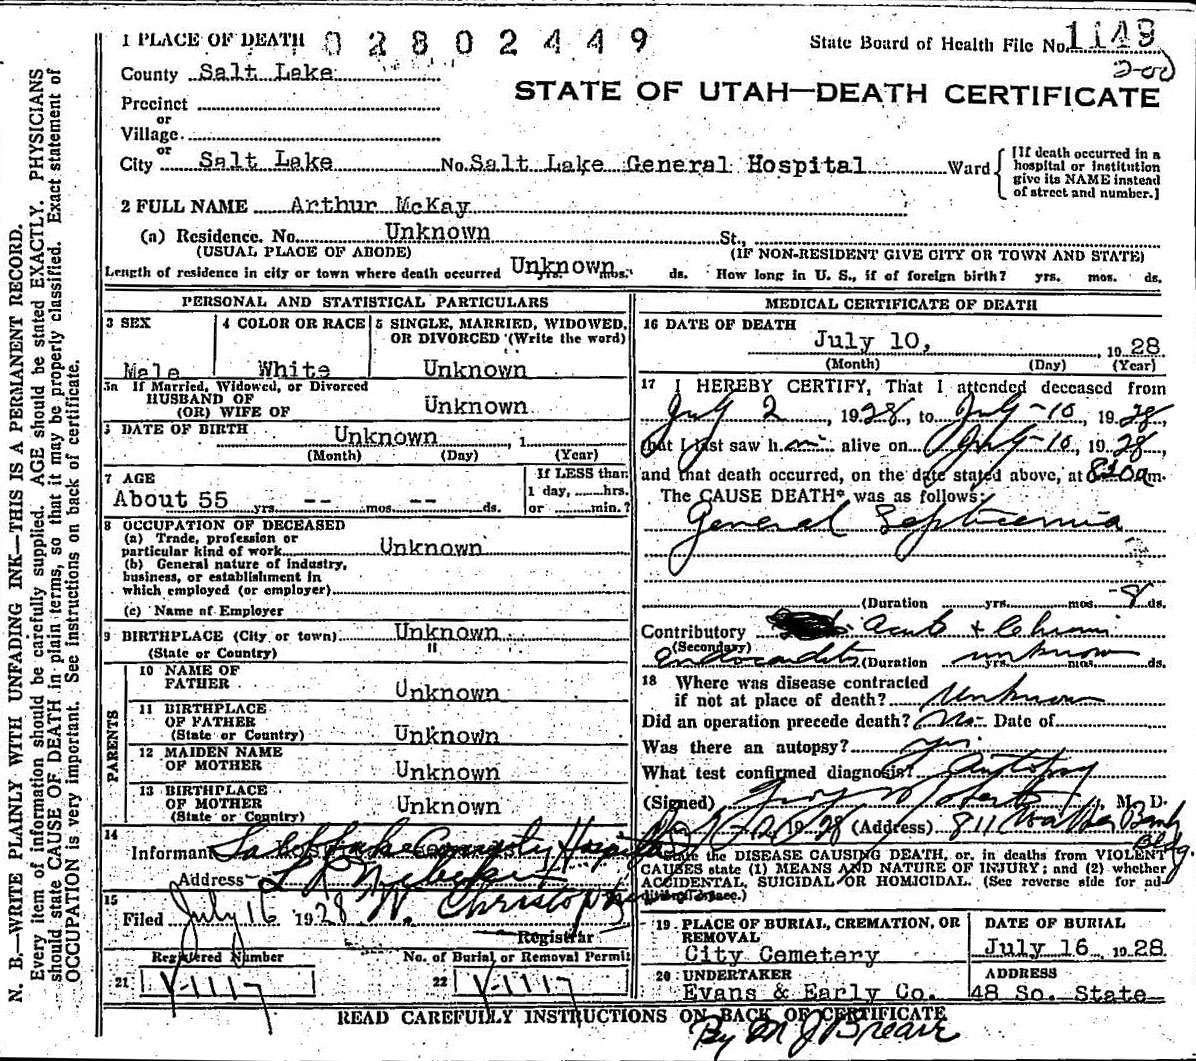 1 PLACE OF DEATH 02802449 State Board of Health File No. 1149
County Salt Lake 2-00
STATE OF UTAH—DEATH CERTIFICATE
Precinct
or
Village
or
City Salt Lake No. Salt Lake General Hospital Ward { [If death occurred in a hospital or institution give its NAME instead of street and number.]
2 FULL NAME Arthur McKay
(a) Residence. No. Unknown St.,
(USUAL PLACE OF ABODE) (IF NON-RESIDENT GIVE CITY OR TOWN AND STATE)
Length of residence in city or town where death occurred Unknown yrs. mos. ds. How long in U. S., if of foreign birth? yrs. mos. ds.
PERSONAL AND STATISTICAL PARTICULARS
3 SEX 4 COLOR OR RACE 5 SINGLE, MARRIED, WIDOWED,
OR DIVORCED (Write the word)
Male White Unknown
5a If Married, Widowed, or Divorced
HUSBAND OF
(OR) WIFE OF Unknown
DATE OF BIRTH Unknown , 1
(Month) (Day) (Year)
7 AGE If LESS than
1 day, hrs.
About 55 yrs. -- mos. -- ds. or min.?
8 OCCUPATION OF DECEASED
(a) Trade, profession or
particular kind of work Unknown
(b) General nature of industry,
business, or establishment in
which employed (or employer)
(c) Name of Employer
9 BIRTHPLACE (City or town) Unknown
(State or Country) "
PARENTS
10 NAME OF
FATHER Unknown
11 BIRTHPLACE
OF FATHER
(State or Country) Unknown
12 MAIDEN NAME
OF MOTHER Unknown
13 BIRTHPLACE
OF MOTHER Unknown
(State or Country)
14
Informant Salt Lake County Hospital
Address
15
Filed July 16 1928
Registrar
Registered Number No. of Burial or Removal Permit
21 V-1117 22 V-1117
MEDICAL CERTIFICATE OF DEATH
16 DATE OF DEATH
July 10, 1928
(Month) (Day) (Year)
17 I HEREBY CERTIFY, That I attended deceased from
July 2, 1928, to July-10, 1928,
that I last saw him alive on July-10, 1928,
and that death occurred, on the date stated above, at m.
The CAUSE DEATH* was as follows:
General Septicemia
(Duration yrs. mos. -8 ds.
Contributory Acute + Chronic
(Secondary)
Endocarditis (Duration unknown yrs. mos. ds.
18 Where was disease contracted
if not at place of death? Unknown
Did an operation precede death? No. Date of
Was there an autopsy? Yes
What test confirmed diagnosis? Autopsy
(Signed) , M. D.
1928 (Address) 811 Walker Bank Bldg
*State the DISEASE CAUSING DEATH, or, in deaths from VIOLENT
CAUSES state (1) MEANS AND NATURE OF INJURY; and (2) whether
ACCIDENTAL, SUICIDAL OR HOMICIDAL. (See reverse side for ad-
ditional space.)
19 PLACE OF BURIAL, CREMATION, OR DATE OF BURIAL
REMOVAL
City Cemetery July 16, 1928
20 UNDERTAKER ADDRESS
Evans & Early Co. 48 So. State
READ CAREFULLY INSTRUCTIONS ON BACK OF CERTIFICATE
By M J
N. B.—WRITE PLAINLY WITH UNFADING INK—THIS IS A PERMANENT RECORD.
Every item of information should be carefully supplied. AGE should be stated EXACTLY. PHYSICIANS
should state CAUSE OF DEATH in plain terms, so that it may be properly classified. Exact statement of
OCCUPATION is very important. See instructions on back of certificate.